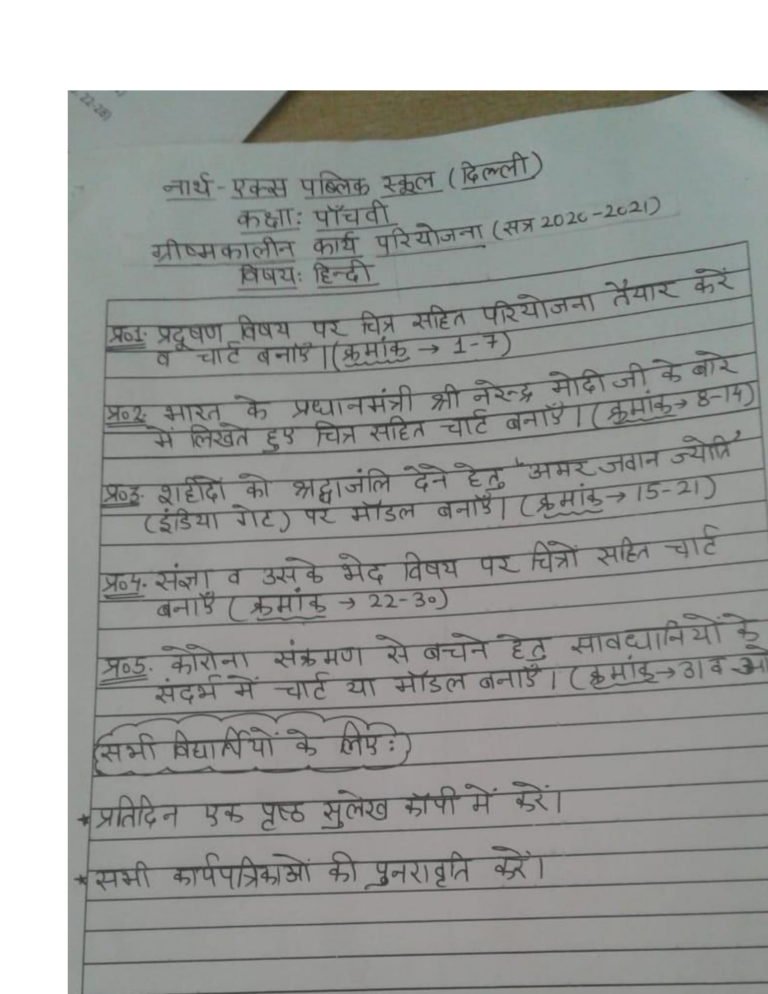 22-28)
नार्थ - एक्स पब्लिक स्कूल (दिल्ली)
कक्षा: पाँचवी
ग्रीष्मकालीन कार्य परियोजना (सत्र 2020-2021)
विषय: हिन्दी
प्र०1. प्रदूषण विषय पर चित्र सहित परियोजना तैयार करें
व चार्ट बनाएँ। (क्रमांक → 1-7)
प्र०2. भारत के प्रधानमंत्री श्री नरेन्द्र मोदी जी के बारे
में लिखते हुए चित्र सहित चार्ट बनाएँ। (क्रमांक → 8-14)
प्र०3. शहीदों को श्रद्धाजंलि देने हेतु "अमर जवान ज्योति"
(इंडिया गेट) पर मॉडल बनाएँ। (क्रमांक → 15-21)
प्र०4. संज्ञा व उसके भेद विषय पर चित्रों सहित चार्ट
बनाएँ (क्रमांक → 22-30)
प्र०5. कोरोना संक्रमण से बचने हेतु सावधानियों के
संदर्भ में चार्ट या मॉडल बनाएँ। (क्रमांक → 31 व
(सभी विद्यार्थियों के लिए:)
* प्रतिदिन एक पृष्ठ सुलेख कॉपी में करें।
* सभी कार्यपत्रिकाओं की पुनरावृति करें।